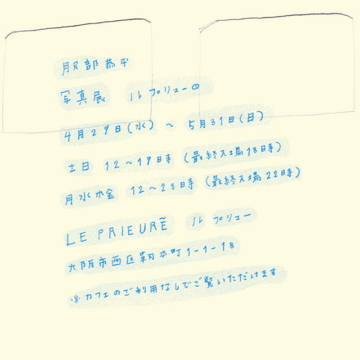 服部恭平
写真展 ル プリューの
4月29日(水) ~ 5月31日(日)
土日 12~19時 (最終入場18時)
月水木金 12~23時 (最終入場22時)
LE PRIEURÉ ル プリュー
大阪市西区靭本町1-1-18
※カフェのご利用なしでご覧いただけます